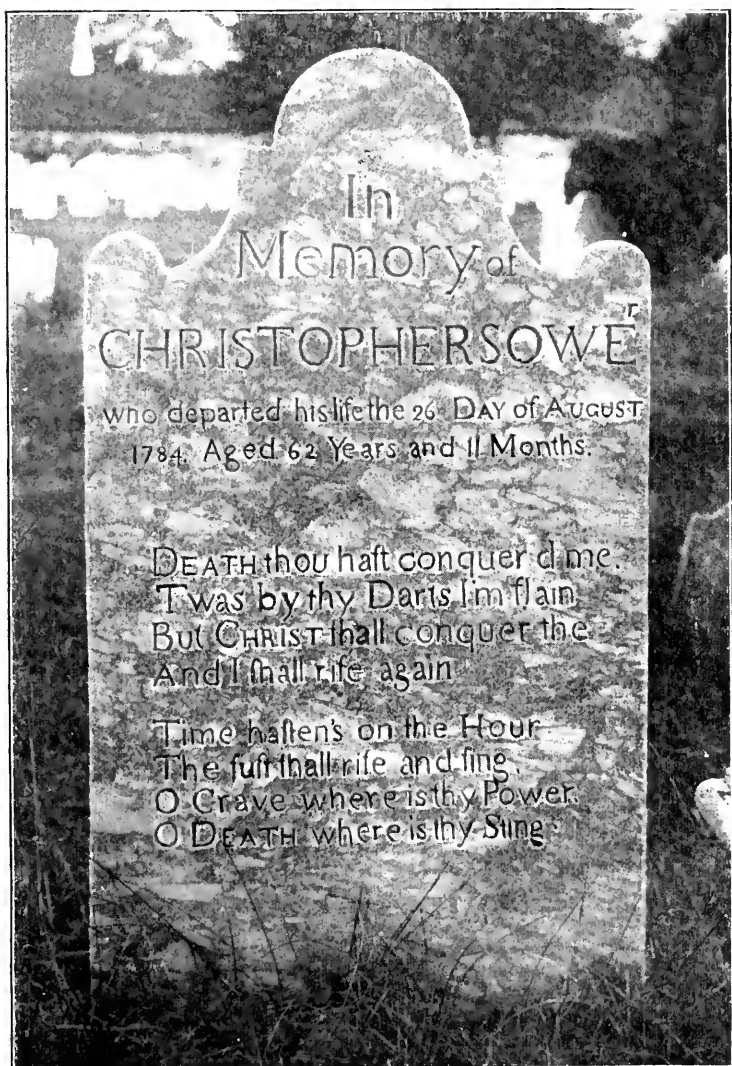 In
Memory of
CHRISTOPHER SOWEr
who departed his life the 26 DAY of AUGUST
1784. Aged 62 Years and 11 Months.
DEATH thou haſt conquer'd me.
T'was by thy Darts I'm ſlain
But CHRIST ſhall conquer the
And I ſhall riſe again
Time haſten's on the Hour
The juſt ſhall riſe and ſing
O Grave where is thy Power.
O DEATH where is thy Sting